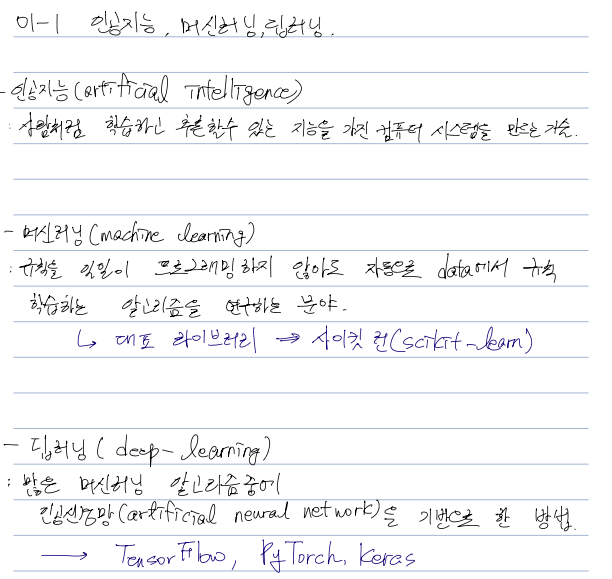 01-1 인공지능, 머신러닝, 딥러닝.
- 인공지능(artificial intelligence)
: 사람처럼 학습하고 추론할 수 있는 지능을 가진 컴퓨터 시스템을 만드는 기술.
- 머신러닝(machine learning)
: 규칙을 일일이 프로그래밍하지 않아도 자동으로 data에서 규칙
학습하는 알고리즘을 연구하는 분야.
↳ 대표 라이브러리 ⇒ 사이킷런(scikit-learn)
- 딥러닝(deep-learning)
: 많은 머신러닝 알고리즘중에
인공신경망(artificial neural network)을 기반으로 한 방법.
→ TensorFlow, PyTorch, Keras